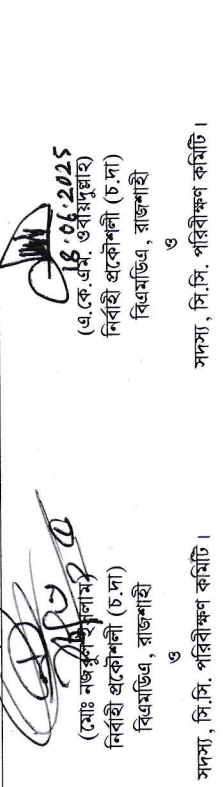 (মোঃ নজরুল ইসলাম)
নির্বাহী প্রকৌশলী (চ.দা)
বিএমডিএ, রাজশাহী
ও
সদস্য, সি.সি. পরিবীক্ষণ কমিটি।
18.06.2025
(এ.কে.এম. ওবায়দুল্লাহ)
নির্বাহী প্রকৌশলী (চ.দা)
বিএমডিএ, রাজশাহী
ও
সদস্য, সি.সি. পরিবীক্ষণ কমিটি।